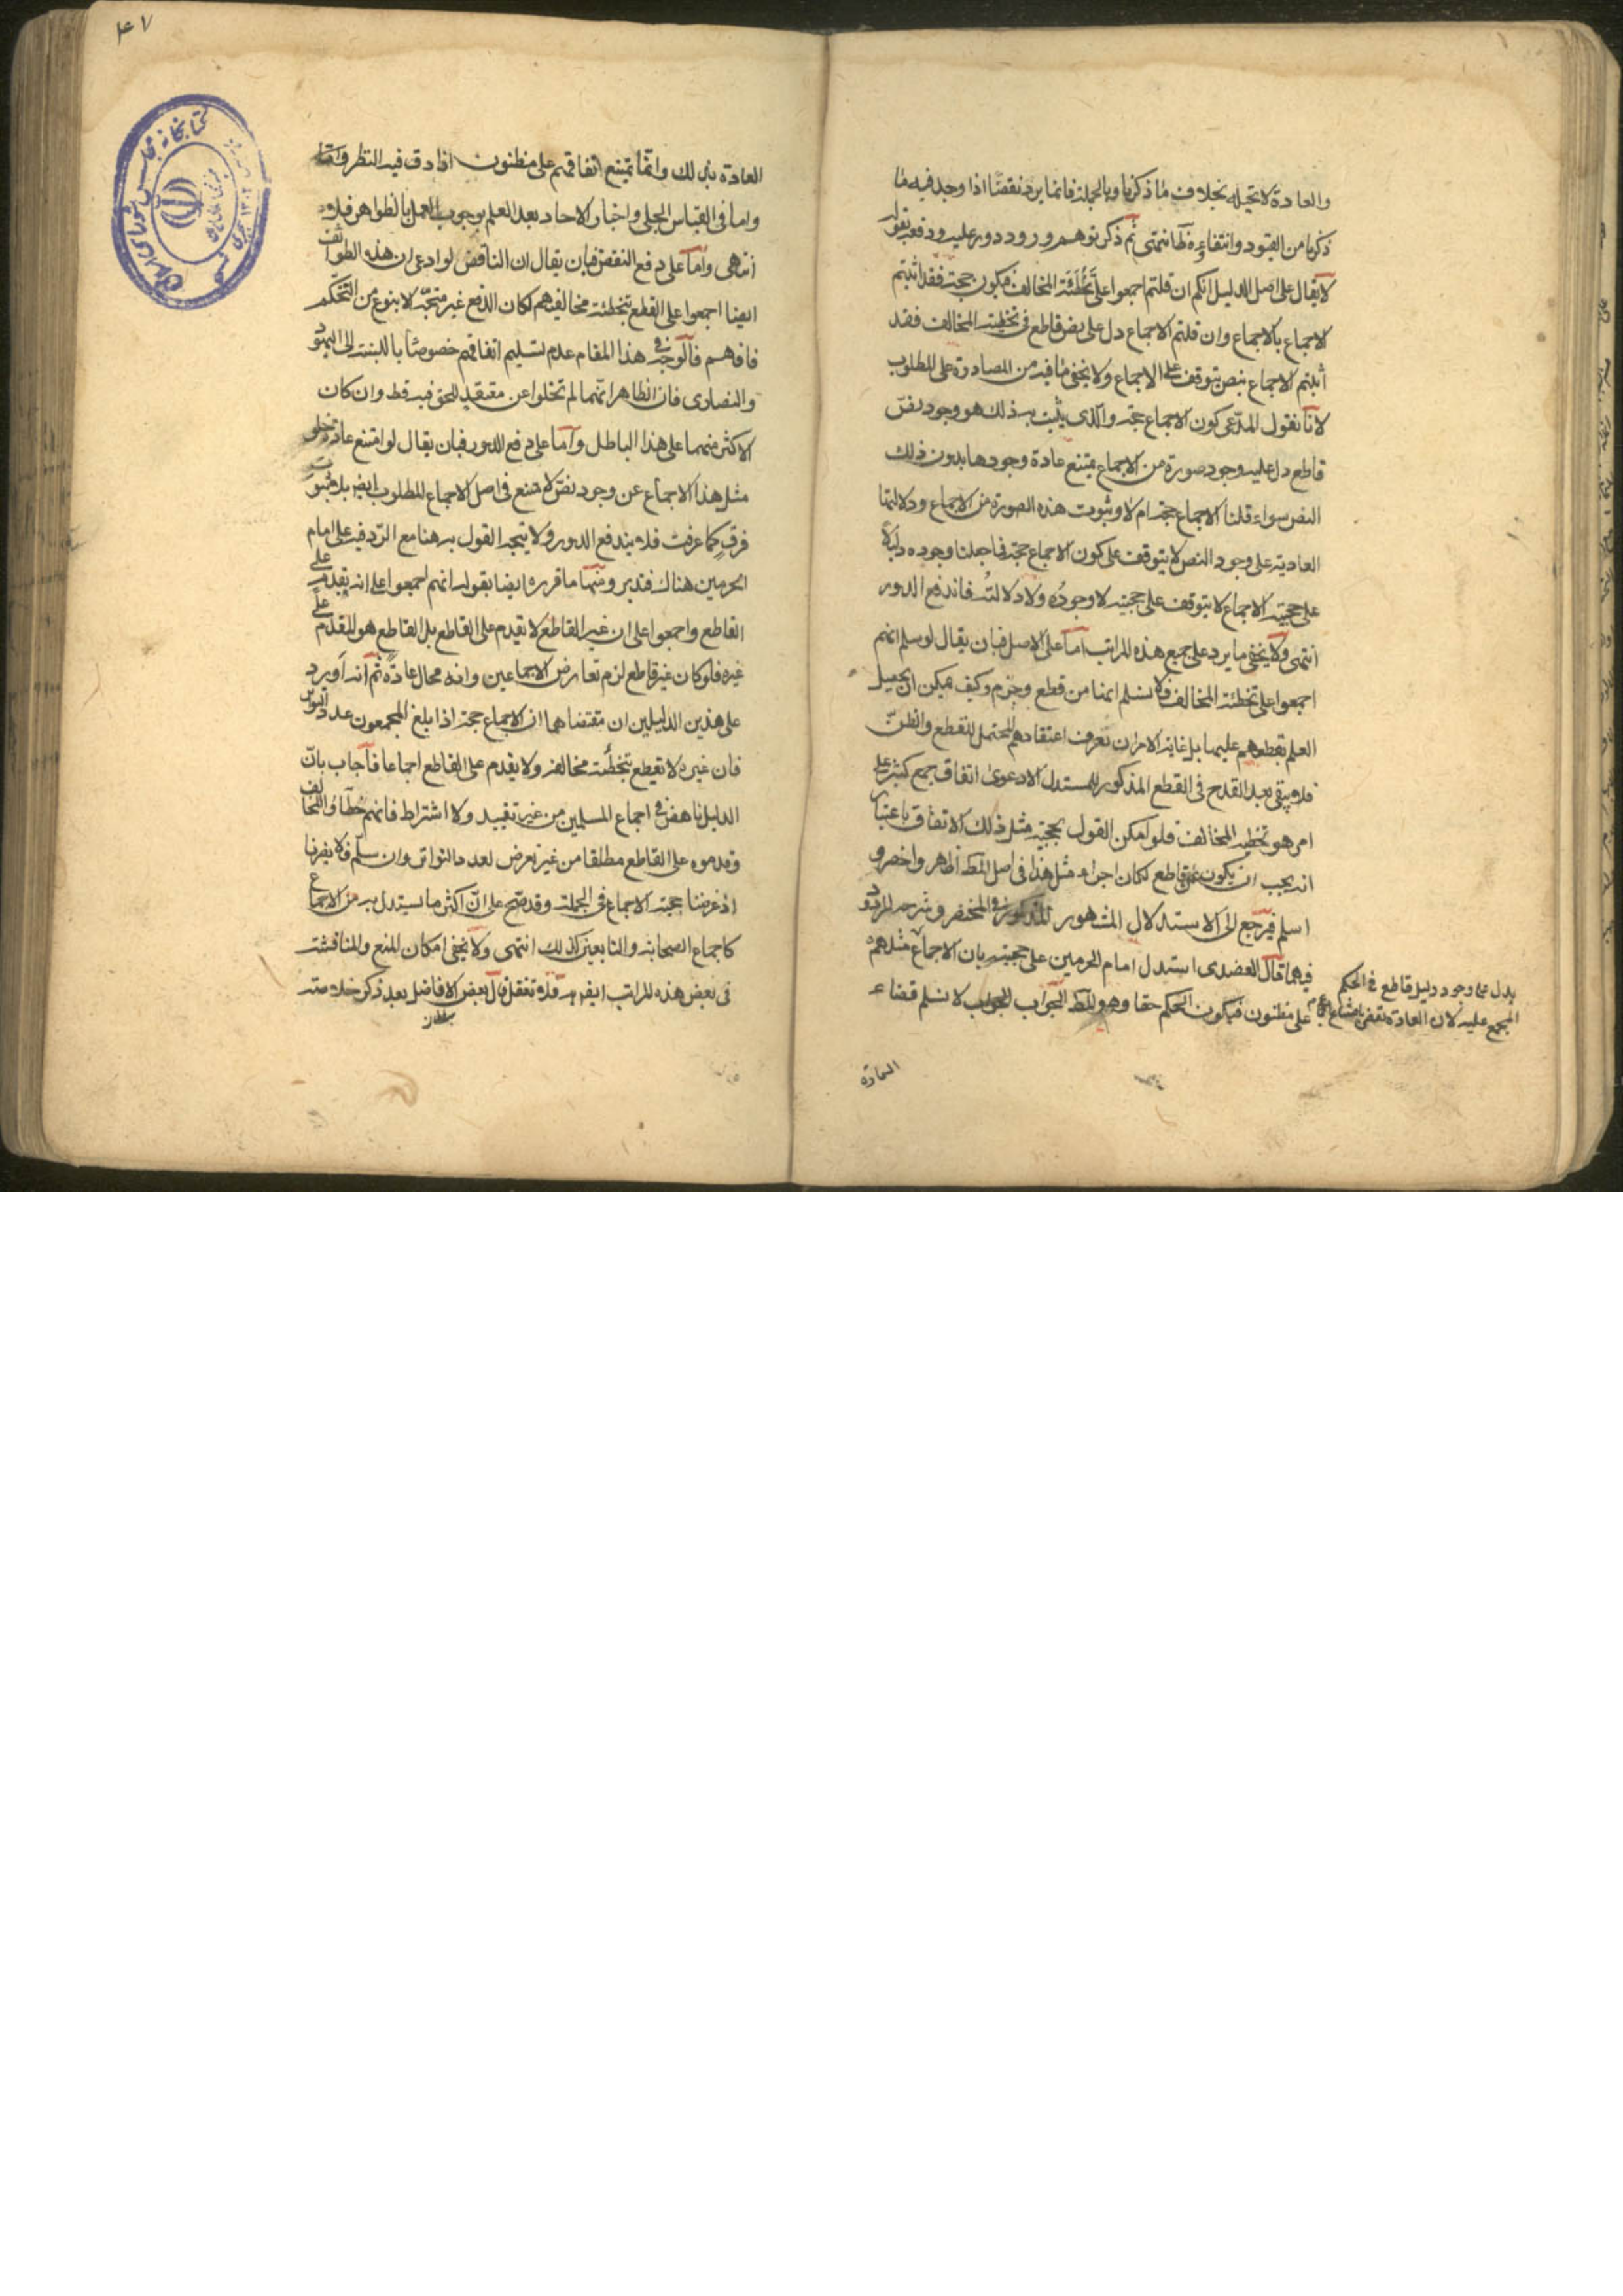 والعادة لا تحيله بخلاف ما ذكرنا وبالجملة فانما يرد نقضا اذا وجد فيه ما
ذكرنا من القيود وانتفاءه ظاهر انتهى ثم ذكر توهم ورود دور عليه ودفعه بقوله
لا يقال على اصل الدليل انكم ان قلتم اجمعوا على تخطئة المخالف فيكون حجة فقد اثبتم
الاجماع بالاجماع وان قلتم الاجماع دل على نص قاطع في تخطئة المخالف فقد
اثبتم الاجماع بنص يتوقف على الاجماع ولا يخفى ما فيه من المصادرة على المطلوب
لانا نقول المدعى كون الاجماع حجة والذي يثبت به ذلك هو وجود نص
قاطع دل عليه وجود صورة من الاجماع يمتنع عادة وجودها بدون ذلك
النص سواء قلنا الاجماع حجة ام لا وثبوت هذه الصورة من الاجماع ودلالتها
العادية على وجود النص لا يتوقف على كون الاجماع حجة فما جعلنا وجوده دليلا
على حجية الاجماع لا يتوقف على حجيته لا وجوده ولا دلالته فاندفع الدور
انتهى ولا يخفى ما يرد على جميع هذه المراتب اما على الاصل فبان يقال لو سلم انهم
اجمعوا على تخطئة المخالف فلا نسلم انها من قطع وجزم وكيف يمكن ان يحصل
العلم بقطعهم عليها بل غاية الامر ان نعرف اعتقادهم المحتمل للقطع والظن
فلا يبقى بعد القدح في القطع المذكور للمستدل الا دعوى اتفاق جمع كثير على
امر هو تخطئة المخالف فلو امكن القول بحجية مثل ذلك الاتفاق باعتبار
انه يجب ان يكون عن قاطع لكان اجراء مثل هذا في اصل المط اظهر واخصر و
اسلم فيرجع الى الاستدلال المشهور المذكور في المختصر وشرحه المردود
فيهما قال العضدي استدل امام الحرمين على حجيته بان الاجماع مثلهم
يدل على وجود دليل قاطع في الحكم
المجمع عليه لان العادة تقضي بامتناع اجتماع
على مظنون فيكون الحكم حقا وهو المط الجواب لا نسلم قضاء
العادة
۴۷
العادة بذلك وانما يمتنع اتفاقهم على مظنون اذا دق فيه النظر
واما في القياس الجلي واخبار الاحاد بعد العلم بوجوب العمل بالظواهر فلا
انتهى واما على دفع النقض فبان يقال ان الناقض لو ادعى ان هذه الطوائف
ايضا اجمعوا على القطع بتخطئة مخالفيهم لكان الدفع غير متجه الا بنوع من التحكم
فافهم فالوجه في هذا المقام عدم تسليم اتفاقهم خصوصا بالنسبة الى اليهود
والنصارى فان الظاهر انهما لم تخلوا عن معتقد للحق فيه قط وان كان
الاكثر منهما على هذا الباطل واما على دفع الدور فبان يقال لو امتنع عادة خلو
مثل هذا الاجماع عن وجود نص لامتنع في اصل الاجماع المطلوب ايضا بلا ثبوت
فرق كما عرفت فلا يندفع الدور ولا يتجه القول به هنا مع الرد فيه على امام
الحرمين هناك فتدبر ومنها ما قرره ايضا بقوله انهم اجمعوا على انه يقدم على
القاطع واجمعوا على ان غير القاطع لا يقدم على القاطع بل القاطع هو المقدم على
غيره فلو كان غير قاطع لزم تعارض الاجماعين وانه محال عادة ثم انه اورد
على هذين الدليلين ان مقتضاهما ان الاجماع حجة اذا بلغ المجمعون عدد التواتر
فان غيره لا يقطع بتخطئة مخالفه ولا يقدم على القاطع اجماعا فاجاب بان
الدليل ناهض في اجماع المسلمين من غير تقييد ولا اشتراط فانهم خطأوا المخالف
وقدموه على القاطع مطلقا من غير تعرض لعدد التواتر وان سلم فلا يضرنا
اذ غرضنا حجية الاجماع في الجملة وقد صح على ان اكثر ما يستدل به من الاجماع
كاجماع الصحابة والتابعين كذلك انتهى ولا يخفى امكان المنع والمناقشة
في بعض هذه المراتب ايضا فلا تغفل قال بعض الافاضل بعد ذكر خلاصته
سلطان